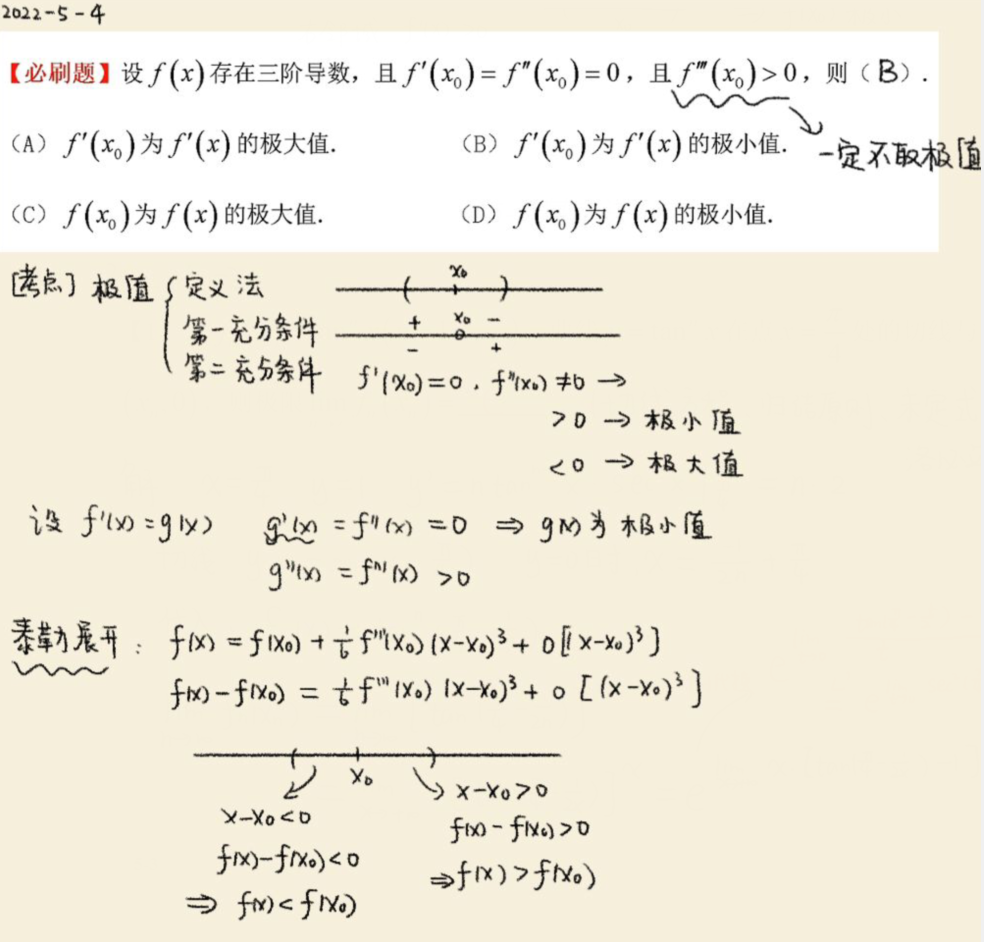 2022-5-4
【必刷题】设 f(x) 存在三阶导数，且 f′(x₀) = f″(x₀) = 0，且 f‴(x₀) > 0，则（ B ）.
(A) f′(x₀) 为 f′(x) 的极大值. (B) f′(x₀) 为 f′(x) 的极小值.
一定不取极值
(C) f(x₀) 为 f(x) 的极大值. (D) f(x₀) 为 f(x) 的极小值.
[考点] 极值 { 定义法 ( x₀ )
第一充分条件 + x₀ -
- +
第二充分条件 f'(x₀)=0 , f''(x₀) ≠0 →
>0 → 极小值
<0 → 极大值
设 f'(x)=g(x) g'(x) = f''(x) = 0 ⇒ g(x)为极小值
g''(x) = f'''(x) >0
泰勒展开: f(x) = f(x₀) + 1/6 f'''(x₀) (x-x₀)³ + o[(x-x₀)³]
f(x)-f(x₀) = 1/6 f'''(x₀) (x-x₀)³ + o [(x-x₀)³]
( x₀ )
x-x₀<0 x-x₀>0
f(x)-f(x₀)<0 f(x)-f(x₀)>0
⇒ f(x)<f(x₀) ⇒f(x)>f(x₀)